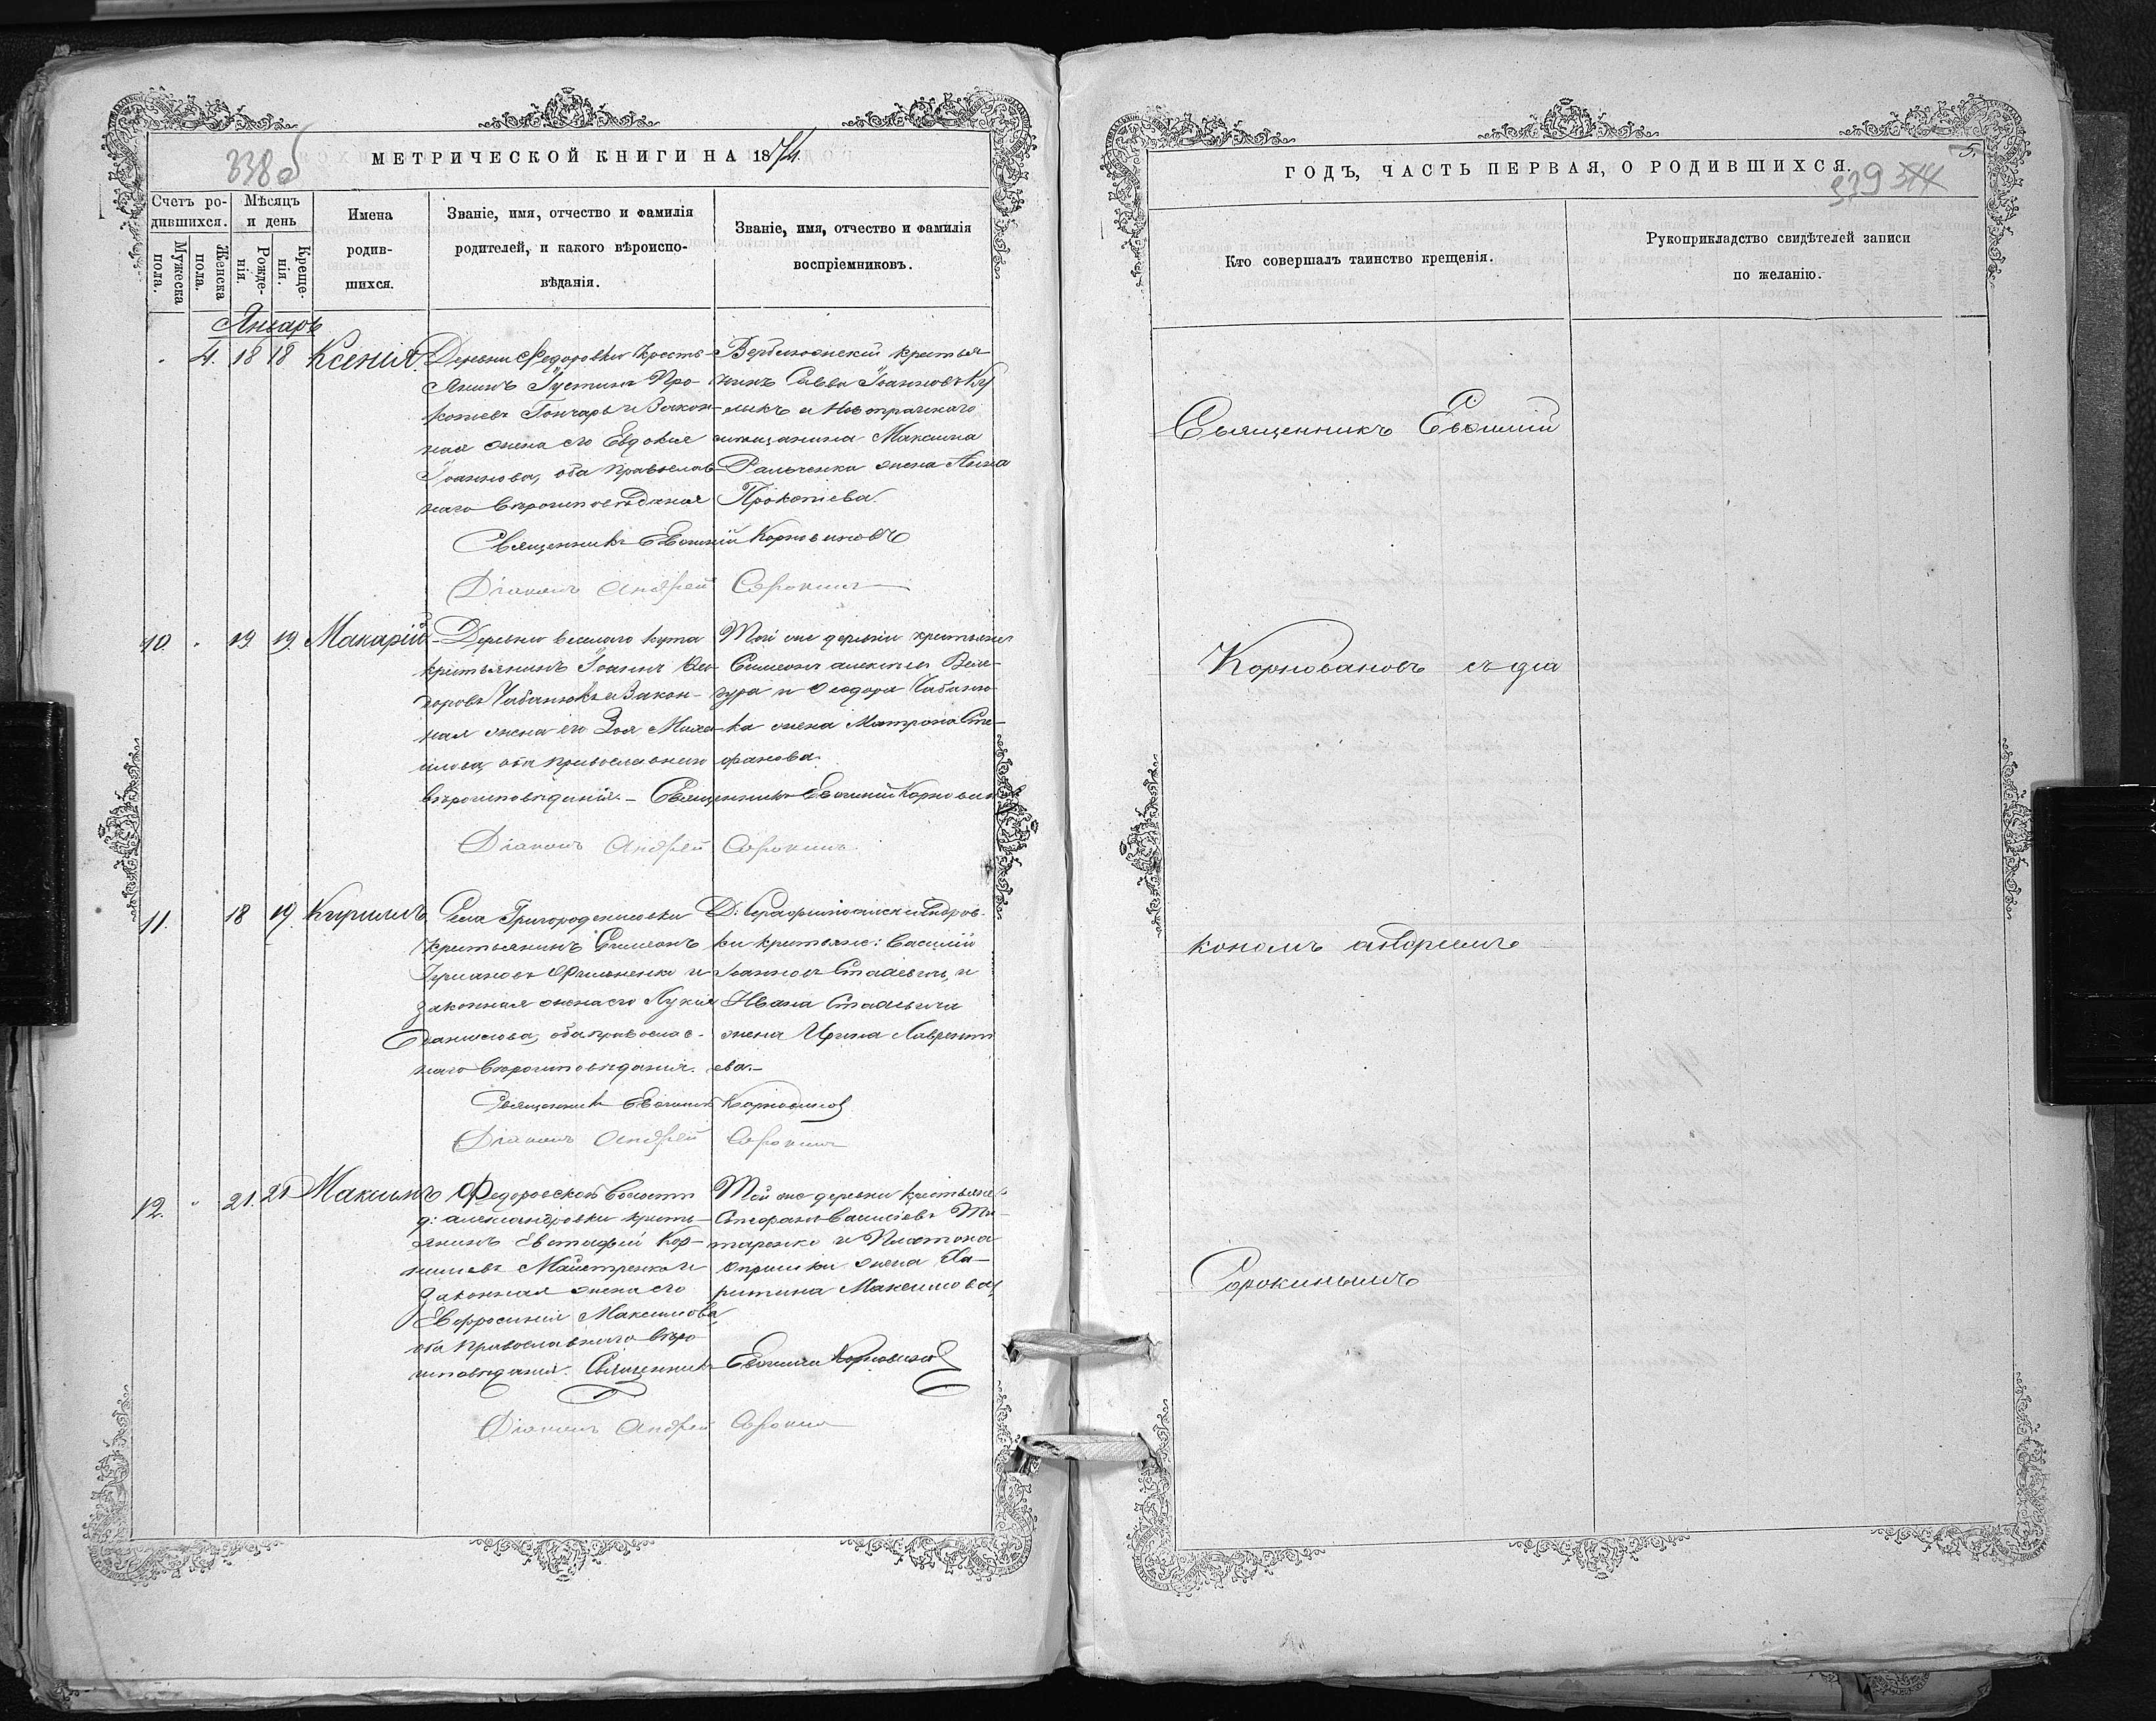 338 об
МЕТРИЧЕСКОЙ КНИГИ НА 1874.
Счетъ ро-
дившихся.
Мѣсяцъ
и день
Мужеска
пола.
Женска
пола.
Рожде-
нія.
Креще-
нія.
Имена
родив-
шихся.
Званіе, имя, отчество и фамилія
родителей, и какого вѣроиспо-
вѣданія.
Званіе, имя, отчество и фамилія
воспріемниковъ.
Январь
4. 18 18 Ксенія.
Деревни Федоровки кресть-
янинъ Іустинъ Про-
копіевъ Гончаръ и Закон-
ная жена его Евдокія
Іоаннова, оба православ-
наго вѣроисповѣданія
крестья-
нинъ Савва Іоанновъ
и
Максима
жена Анна
Прокопіева.
Священникъ Евѳимій Корновановъ
Діаконъ Андрей Сорокинъ
10. " 19. 19. Макарій
Деревни Веселаго Кута
крестьянинъ Іоаннъ Ѳео-
доровъ Чабанюкъ и Закон-
ная жена его Зоя Михаи-
лова, оба православнаго
вѣроисповѣданія.
Той же деревни крестьяне
Симеонъ
и Ѳеодора Чабаню-
ка жена Матрона Сте-
фанова.
Священникъ Евѳимій Корнованов
Діаконъ Андрей Сорокинъ.
11. 18 19. Кириллъ
Села Григороденисовки
крестьянинъ Симеонъ
и
законная жена его Лукія
Даниилова, оба православ-
наго вѣроисповѣданія.
ки крестьяне: Василій
Іоанновъ и
Ивана
жена Ирина Лавренті-
ева.
Священникъ Евѳимій Корнованов
Діаконъ Андрей Сорокинъ
12. " 21. 21 Максимъ
Федоровской Волости
д: Александровки кресть-
янинъ Евстафій Кор-
ниліевъ Майстренко и
Законная жена его
Евфросинія Максимова
оба православнаго вѣро-
исповѣданія.
Той же деревни крестьяне
Стефанъ Василіевъ Ти-
таренко и Платона
жена Ха-
ритина Максимова
Священникъ Евѳимій Корнованов
Діаконъ Андрей Сорокин
5.
ГОДЪ, ЧАСТЬ ПЕРВАЯ, О РОДИВШИХСЯ.
339
Кто совершалъ таинство крещенія.
Рукоприкладство свидѣтелей записи
по желанію.
Священникъ Евѳимій
Корновановъ съ діа
кономъ Андреемъ
Сорокинымъ